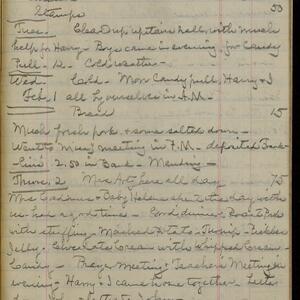 Stamps 53
Tues. Clear up upstairs hall, with much
help for Harry - Boys came in evening, for Candy
Pull - 12 - Cold weather -
Wed. Cold - Morn Candy pull, Harry & I
Feb. 1 all by ourselves in P.M. -
Bread 15
Much fresh pork & some salted down -
Went to Miss'y meeting in P.M. - deposited
2.50 in Bank - Mending -
Thurs. 2 Mrs here all day 75
Mrs & Baby Helen the day with
us - had good times - Good dinner, Roast
with stuffing - Mashed Potato - Turnip - Pickles
Jelly - Chocolate Cream with Whipped Cream -
Candy - Prayer Meeting & Teachers' Meeting in
evening - Harry & I came home together -